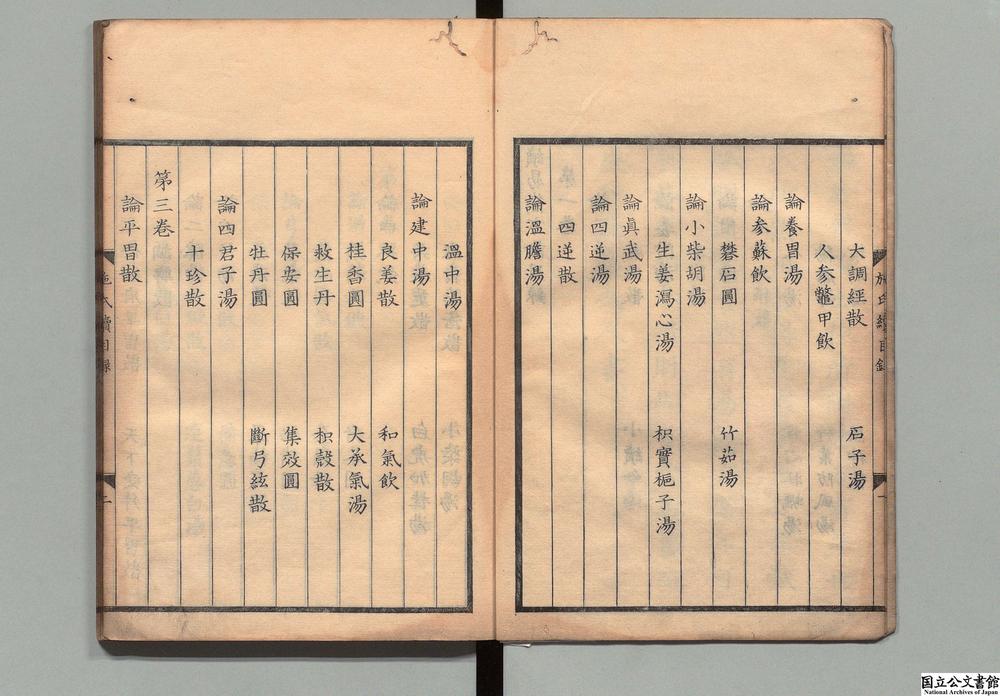 大調經散 石子湯
人参鼈甲飲
論養胃湯
論参蘇飲
礬石圓 竹茹湯
論小柴胡湯
生姜瀉心湯 枳實梔子湯
論眞武湯
論四逆湯
四逆散
論溫膽湯
施氏續目録
一
溫中湯
論建中湯
良姜散 和氣飲
桂香圓 大承氣湯
救生丹 枳殻散
保安圓 集效圓
牡丹圓 斷弓絃散
論四君子湯
十珍散
第三卷
論平胃散
施氏續目録
二
国立公文書館
National Archives of Japan